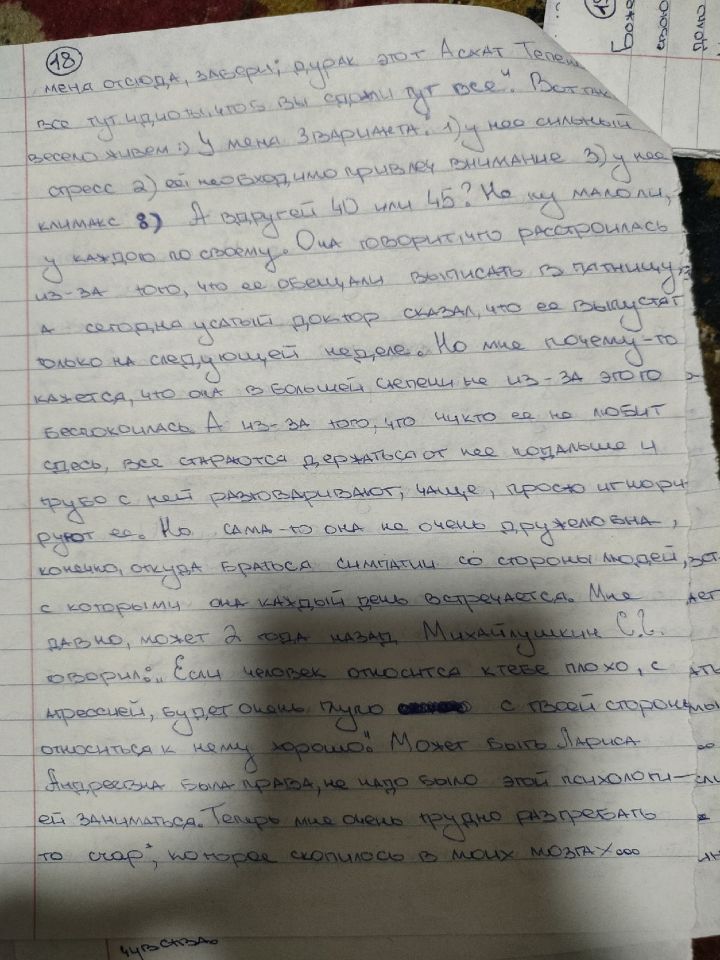 18
меня отсюда, забери; дурак этот Аскат
все тут идиоты, чтоб вы сдохли тут все". Вот так
весело живем :) У меня 3 варианта: 1) у нее сильный
стресс 2) ей необходимо привлеч внимание 3) у нее
климакс 8) А вдруг ей 40 или 45? Но ну мало ли,
у каждого по своему. Она говорит, что расстроилась
из-за того, что ее обещали выписать в пятницу,
а сегодня усатый доктор сказал, что ее выпустят
только на следующей неделе. Но мне почему-то
кажется, что она в большей степени не из-за этого
беспокоилась. А из-за того, что никто ее не любит
здесь, все стараются держаться от нее подальше и
грубо с ней разговаривают, чаще, просто игнори
руют ее. Но сама-то она не очень дружелюбна,
конечно, откуда браться симпатии со стороны людей,
с которыми она каждый день встречается. Мне
давно, может 2 года назад Михайлушкин С.С.
оворил: „Если человек относится к тебе плохо, с
агрессией, будет очень глупо с твоей стороны
относиться к нему хорошо." Может быть Лариса
Андреевна была права, не надо было этой психологи-
ей заниматься. Теперь мне очень трудно разгребать
то, которое скопилось в моих мозгах...
чувства.